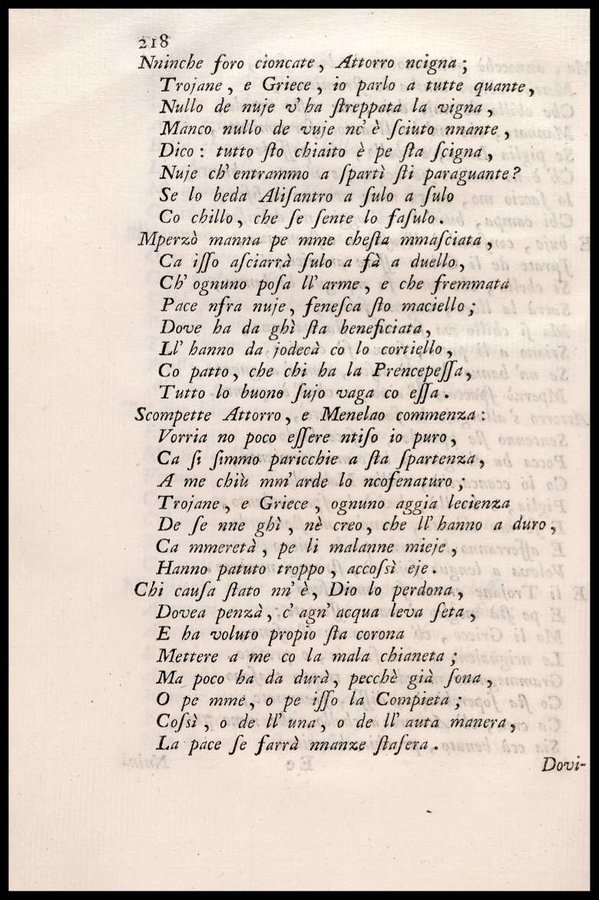 218
Nninche foro cioncate, Attorro ncigna;
Trojane, e Griece, io parlo a tutte quante,
Nullo de nuje v'ha ſtreppata la vigna,
Manco nullo de vuje nc'è ſciuto nnante,
Dico: tutto ſto chiaito è pe ſta ſcigna,
Nuje ch'entrammo a ſpartì ſti paraguante?
Se lo beda Aliſantro a ſulo a ſulo
Co chillo, che ſe ſente lo faſulo.
Mperzò manna pe mme cheſta mmaſciata,
Ca iſſo aſciarrà ſulo a fà a duello,
Ch'ognuno poſa ll'arme, e che fremmata
Pace nfra nuje, feneſca ſto maciello;
Dove ha da ghì ſta beneficiata,
Ll'hanno da jodecà co lo cortiello,
Co patto, che chi ha la Prencepeſſa,
Tutto lo buono ſujo vaga co eſſa.
Scompette Attorro, e Menelao commenza:
Vorria no poco eſſere ntiſo io puro,
Ca ſi ſimmo paricchie a ſta ſpartenza,
A me chiù mm'arde lo ncofenaturo;
Trojane, e Griece, ognuno aggia lecienza
De ſe nne ghì, nè creo, che ll'hanno a duro,
Ca mmeretà, pe li malanne mieje,
Hanno patuto troppo, accoſsì eje.
Chi cauſa ſtato nn'è, Dio lo perdona,
Dovea penzà, c'agn'acqua leva ſeta,
E ha voluto propio ſta corona
Mettere a me co la mala chianeta;
Ma poco ha da durà, pecchè già ſona,
O pe mme, o pe iſſo la Compieta;
Coſsì, o de ll'una, o de ll'auta manera,
La pace ſe farrà nnanze ſtaſera.
Dovi-